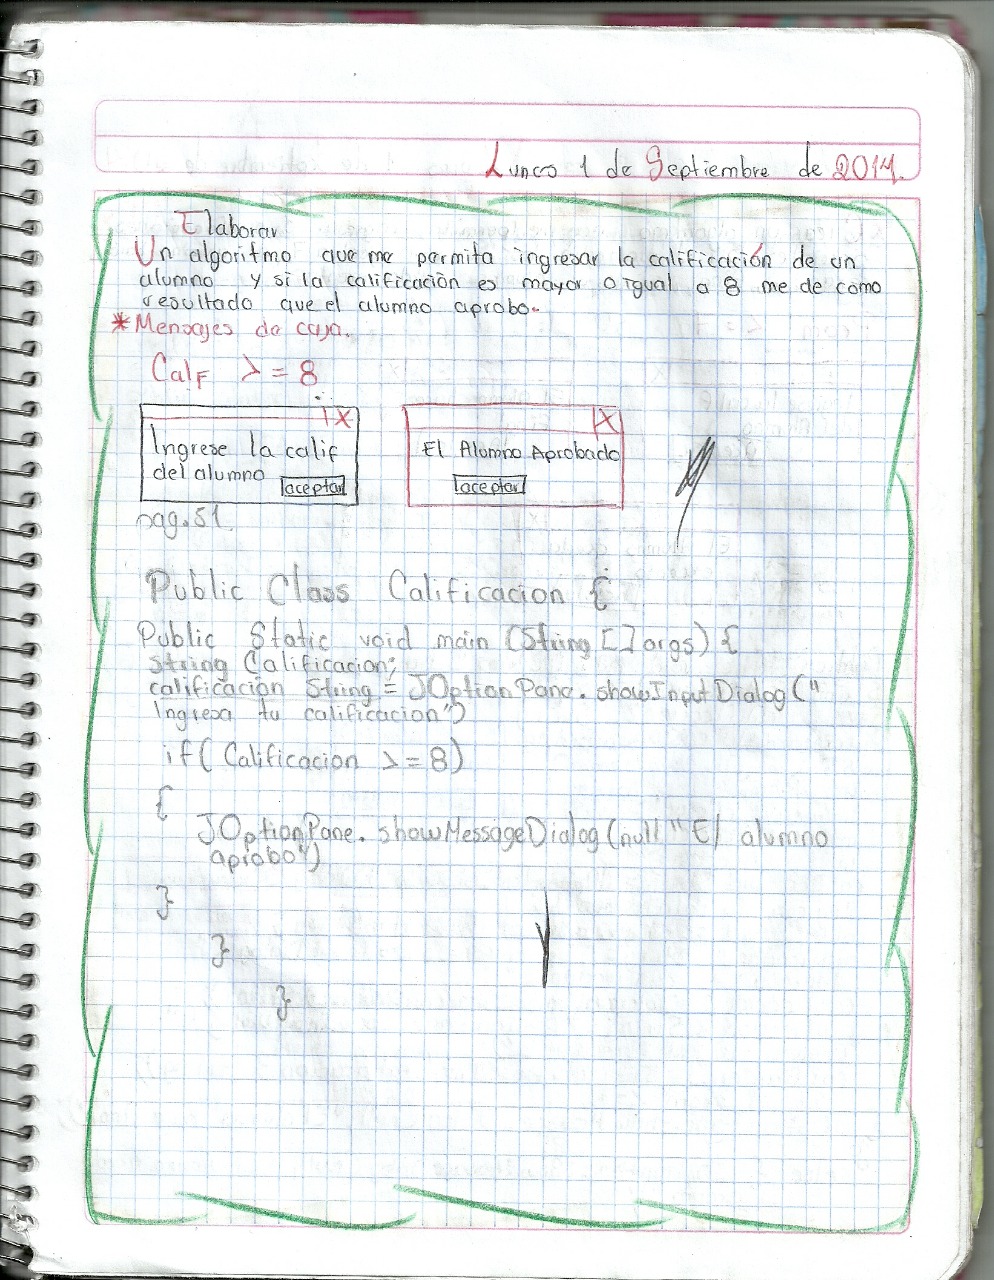 Lunes 1 de Septiembre de 2014.
Elaborar
Un algoritmo que me permita ingresar la calificación de un
alumno y si la calificación es mayor o igual a 8 me de como
resultado que el alumno aprobo.
*Mensajes de caja.
Calf >=8
X
Ingrese la calif
del alumno aceptar
X
El Alumno Aprobado
aceptar
pag.51
Public Class Calificacion {
Public Static void main (String [] args) {
string Calificacion;
calificacion String = JOptionPane.showInputDialog("
Ingresa tu calificacion")
if( Calificacion >=8)
{
JOptionPane.showMessageDialog(null "El alumno
aprobo")
}
}
}